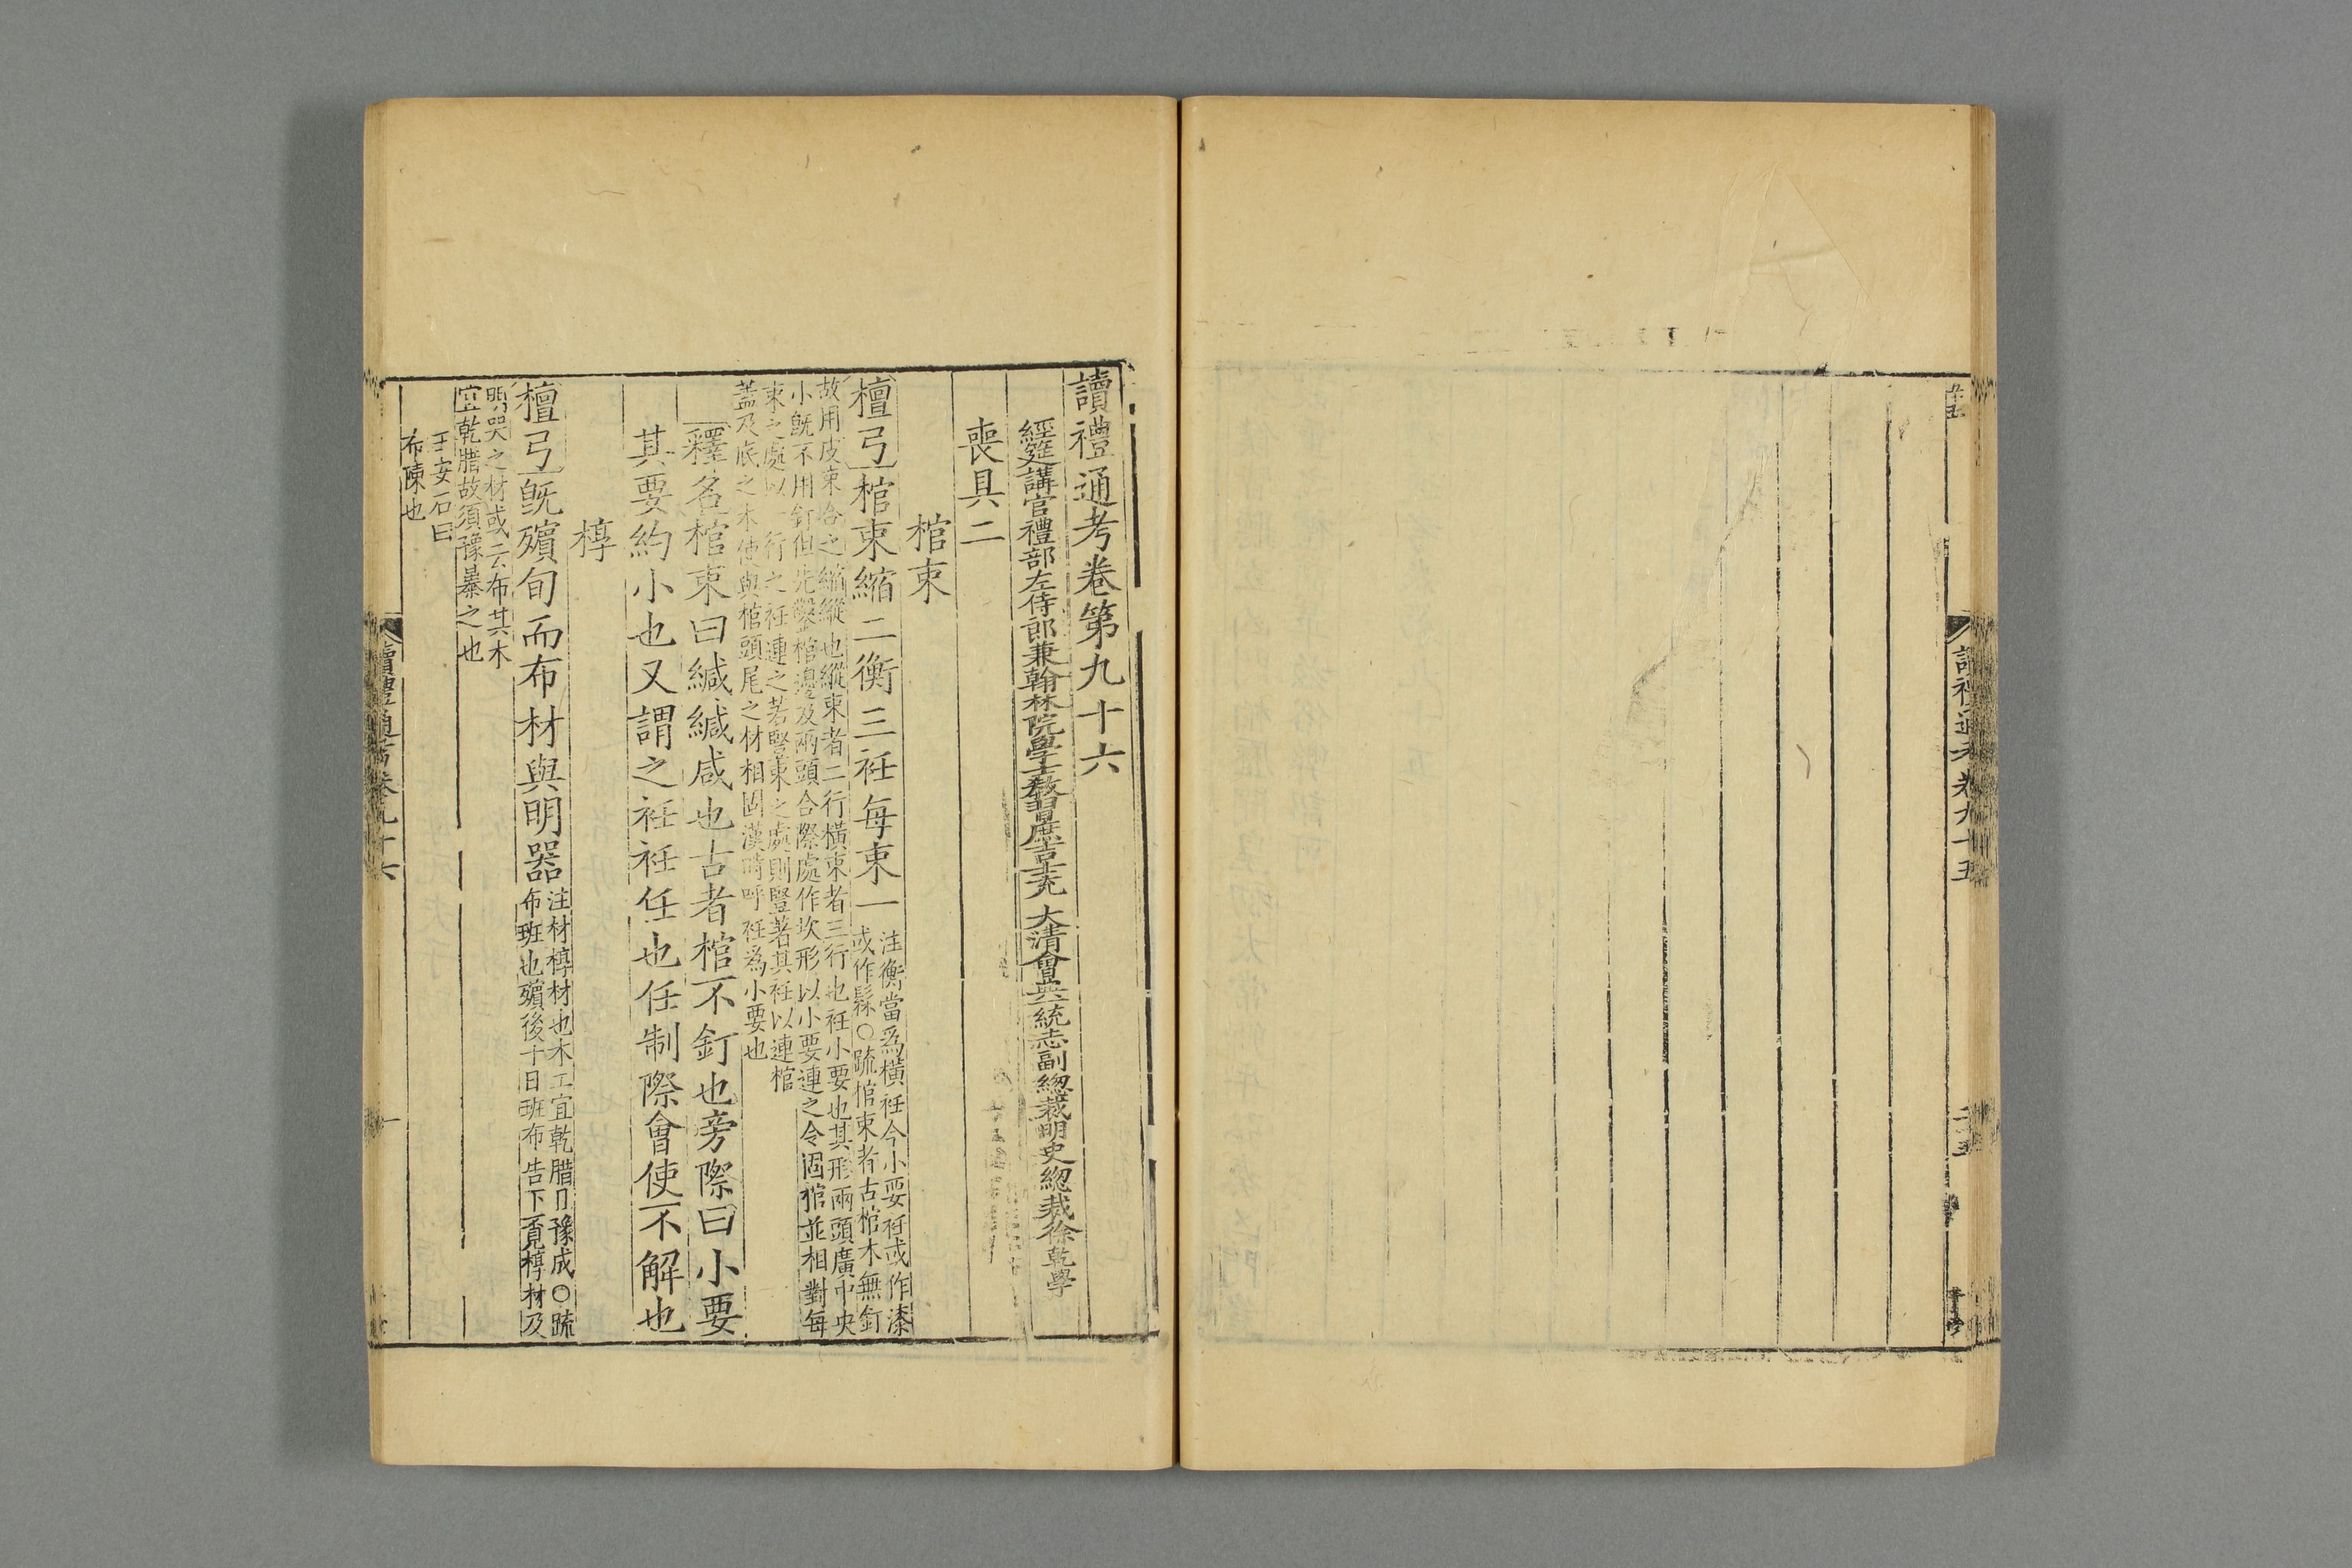 讀禮通考卷九十五
二十五
讀禮通考卷第九十六
經筵講官禮部左侍郎兼翰林院學士教習庶吉士充 大清會典一統志副總裁明史總裁徐乾學
喪具二
棺束
檀弓棺束縮二衡三衽每束一
注衡當爲橫衽今小要衽或作漆
或作髹○疏棺束者古棺木無釘
故用皮束合之縮縱也縱束者二行橫束者三行也衽小要也其形兩頭廣中央
小旣不用釘但先鑿棺邊及兩頭合際處作坎形以小要連之令固棺並相對每
束之處以一行之衽連之若豎束之處則豎著其衽以連棺
蓋及底之木使與棺頭尾之材相固漢時呼衽爲小要也
釋名棺束曰緘緘咸也古者棺不釘也旁際曰小要
其要約小也又謂之衽衽任也任制際會使不解也
椁
檀弓旣殯旬而布材與明器
注材椁材也木工宜乾腊且豫成○疏
布班也殯後十日班布告下覓椁材及
明器之材或云布其木
宜乾腊故須豫暴之也
王安石曰
布陳也
讀禮通考卷九十六
一